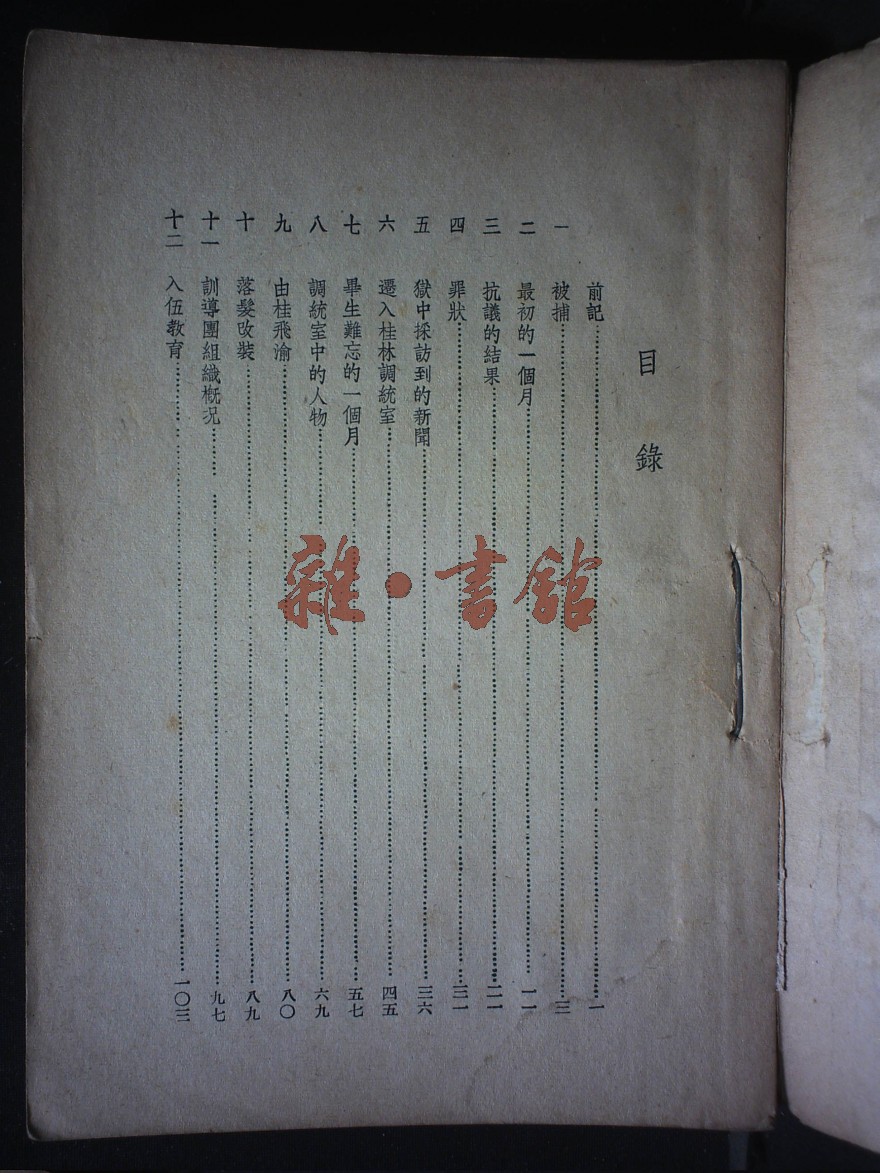 目錄
前記……一
一 被捕……三
二 最初的一個月……一一
三 抗議的結果……二一
四 罪狀……三一
五 獄中採訪到的新聞……三六
六 遷入桂林調統室……四五
七 畢生難忘的一個月……五七
八 調統室中的人物……六九
九 由桂飛渝……八〇
十 落髮改裝……八九
十一 訓導團組織概況……九七
十二 入伍教育……一〇三
雜·書館